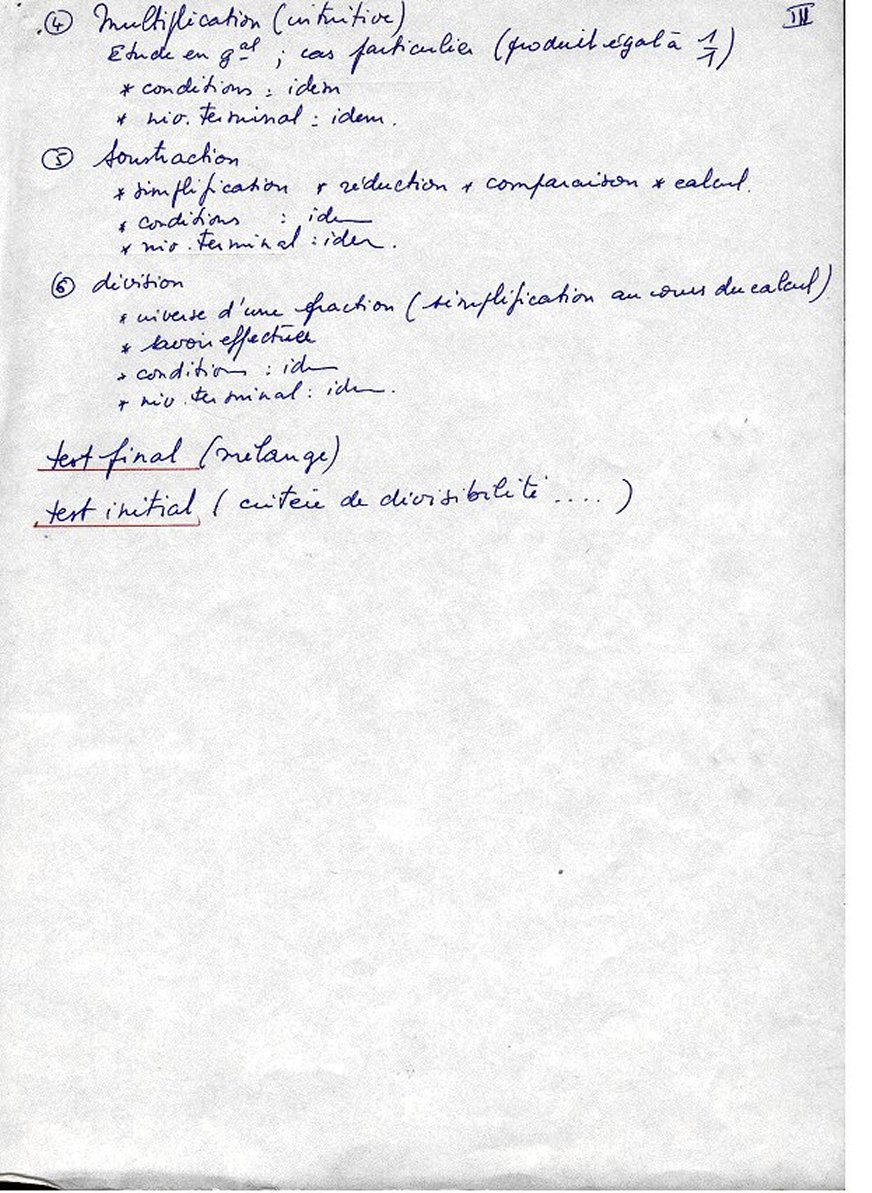 III
④ Multiplication (intuitive)
Etude en gal ; cas particulier (produit égal à 1/1)
* conditions : idem
* niv. terminal : idem.
⑤ Soustraction
* simplification * réduction * comparaison * calcul.
* conditions : idem
* niv. terminal : idem.
⑥ division
* inverse d'une fraction (simplification au cours du calcul)
* savoir effectuer
* conditions : idem
* niv. terminal : idem.
test final (mélange)
test initial (critère de divisibilité ....)